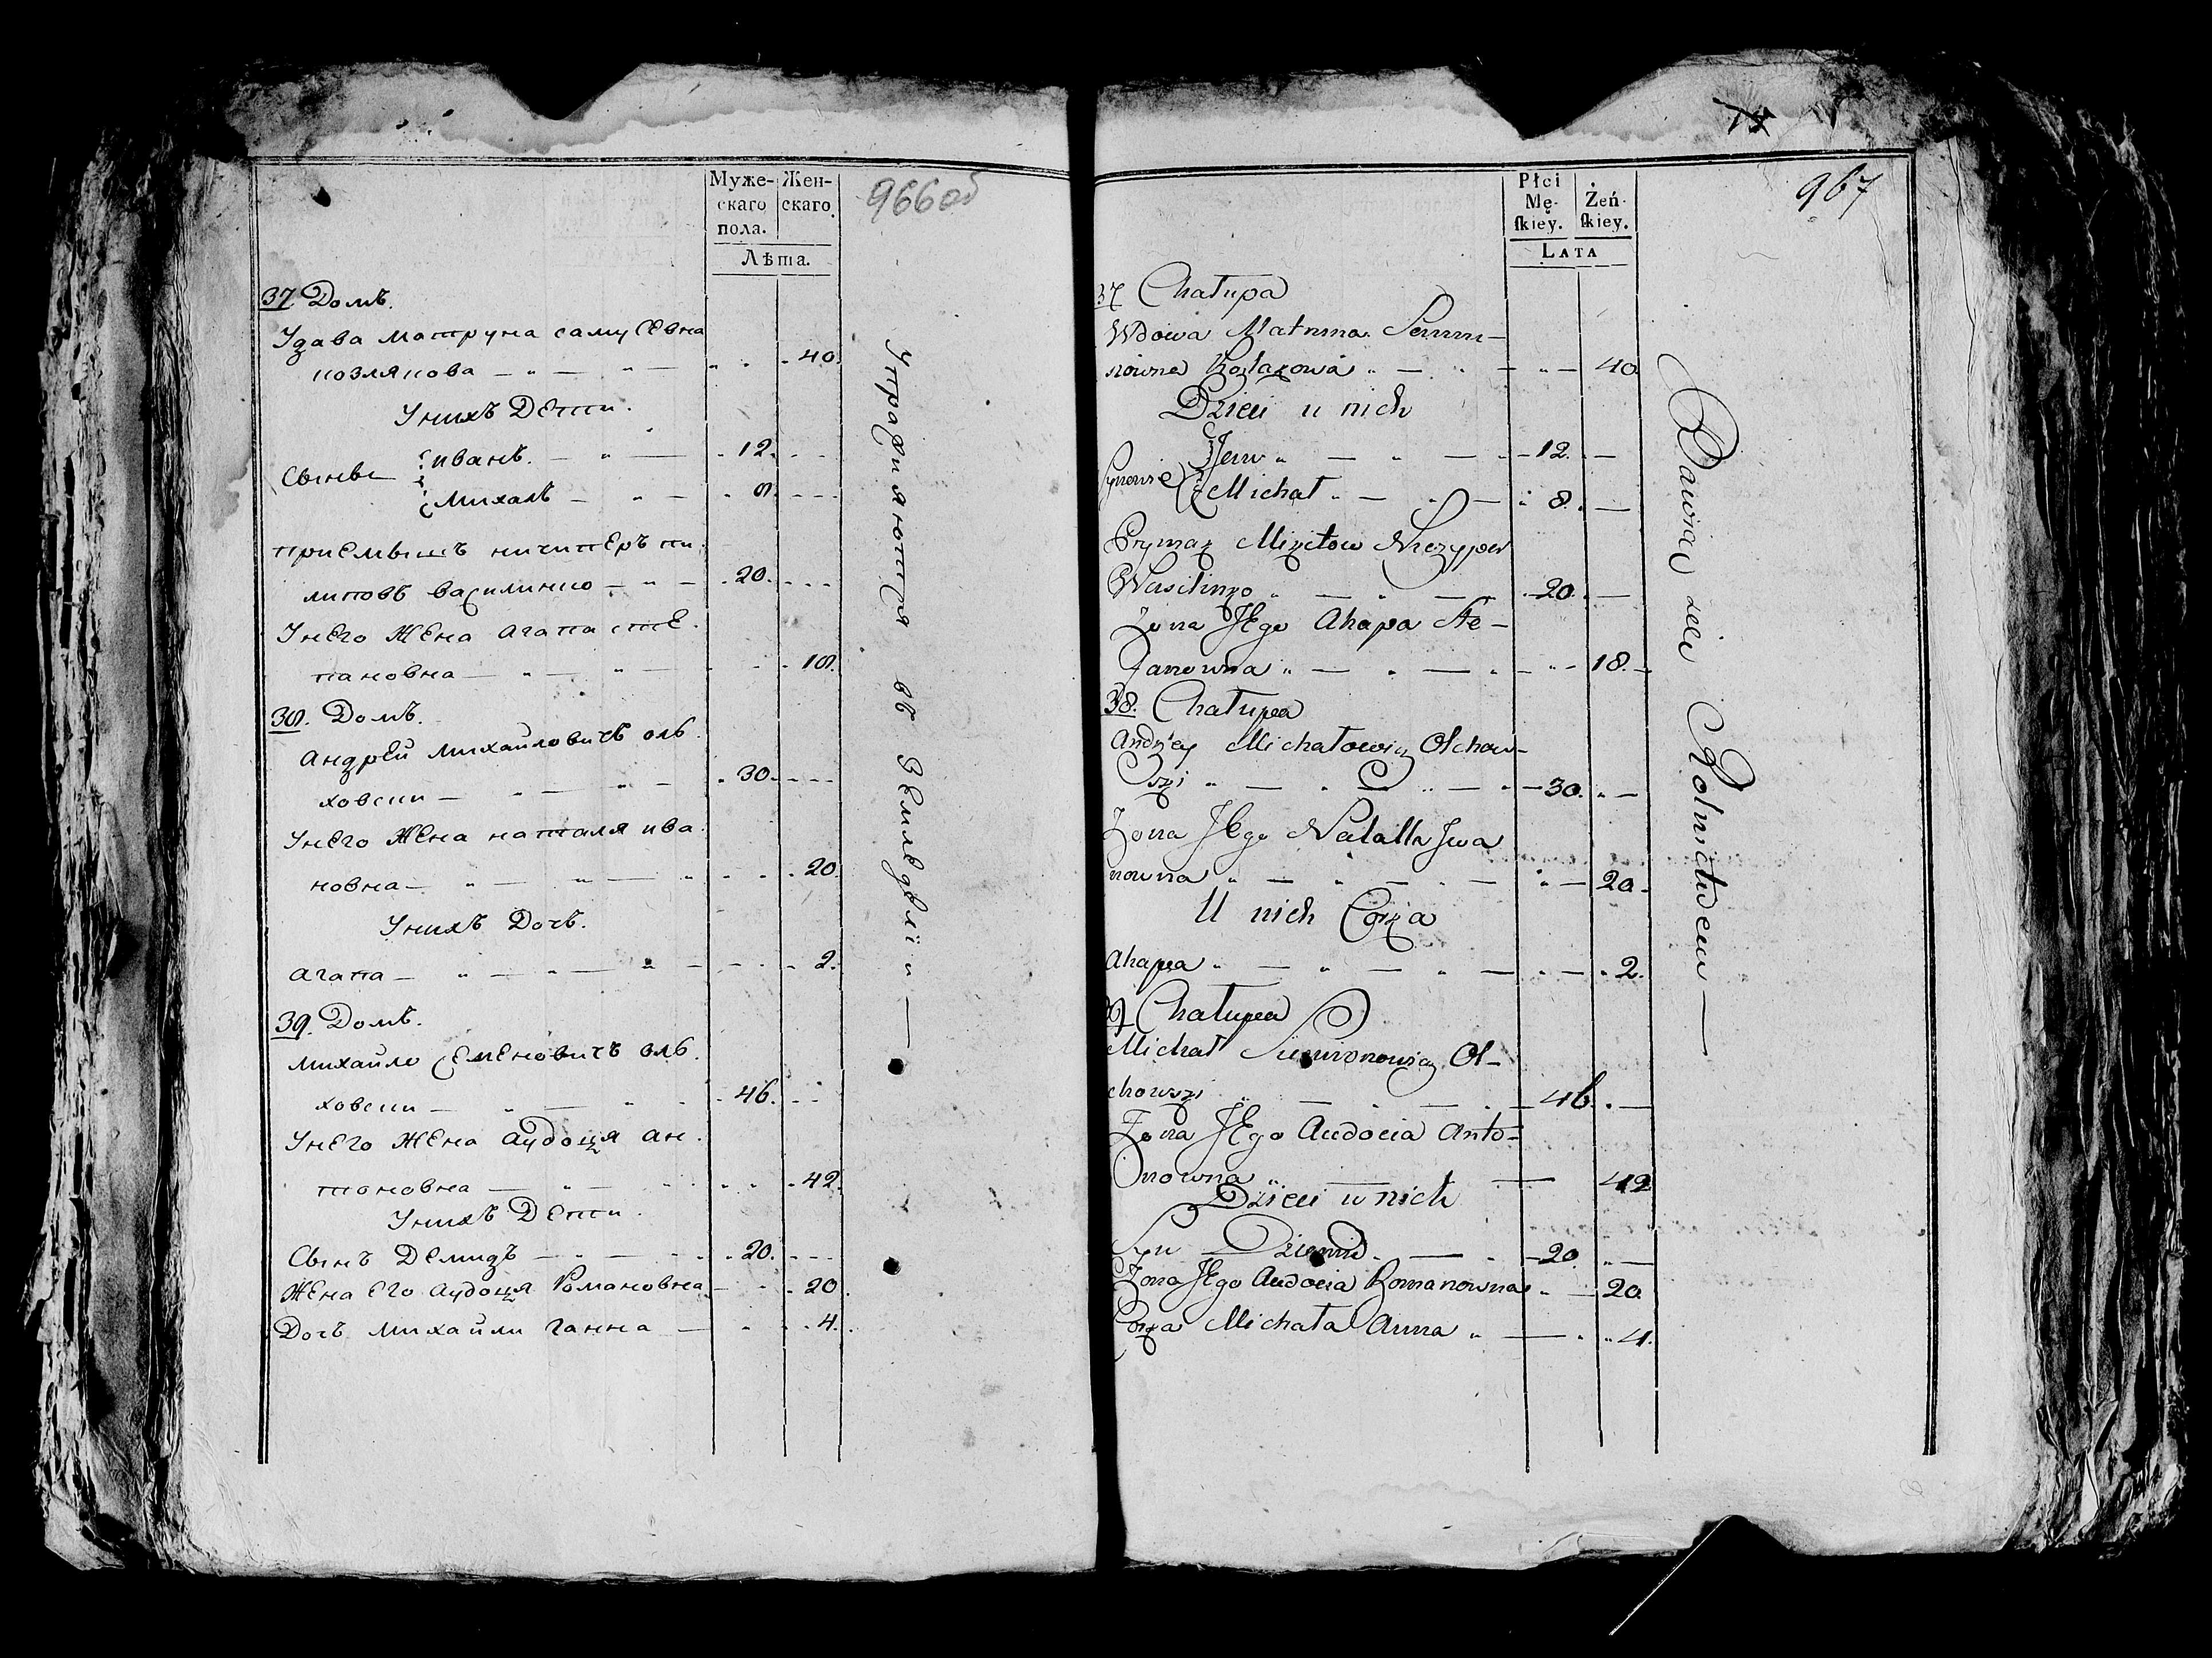 Муже-
скаго
пола.
Жен-
скаго.
Лѣта.
966об
37. Домъ.
Удава Матруна саму сѣвна
козлякова — „ — „ — „ „ - 40.
Унихъ Дети.
Сынве { иванъ. — „ — - 12. - -
{ Михалъ — „ — - 8. - - -
приемышъ ничиперъ пи.
липовъ василинко — „ — - 20. - - -
Унего Жена агапа сте.
пановна — „ — „ — - 18.
38. Домъ.
Андрей Михайловичъ оль.
ховски — „ — „ — - 30. - - -
Унего Жена наталя ива.
новна — „ — „ — „ - 20.
Унихъ Дочъ.
агапа — „ — „ — „ — - 2.
39. Домъ.
Михайло Семеновичъ оль.
ховски — „ — „ - 46. - -
Унего Жена аудоця ан.
тоновна — „ — - 42.
Унихъ Дети.
Сынъ Демидъ — „ — - 20. - - -
Жена его аудоця Романовна — - 20.
Дочъ Михайли ганна — - 4.
Упражняются въ Земледѣлїи —
Płci
Mę-
ſkiey.
Żeń-
ſkiey.
LATA
967
37 Chałupa
Wdowa Matruna
Kozlakowa „ — „ — „ — 40
Dzieci u nich
Synowie { Jwan „ — „ — - 12. —
{ Michał „ — „ — „ 8. —
Prymak Niczyper
Wasilinko „ — „ — - 20. —
Żona Jego Ahapa Ste-
panowna „ — „ — „ - 18. —
38. Chałupa
Andrzey Michałowicz Olchow-
ski „ — „ — „ — 30. „ —
Żona Jego Natalla Jwa
nowna „ — „ — „ — 20.
U nich Corka
Ahapa „ — „ — „ — „ 2.
39 Chałupa
Michał Siemionowicz Ol-
chowski „ — „ — 46. „ —
Żona Jego Audocia Anto-
nowna „ — — 42
Dzieci u nich
Syn Dziemid „ — - 20. „ —
Żona Jego Audocia Romanowna „ — 20.
Corka Michała Anna „ — „ „ 4.
Bawią się Rolnictwem —